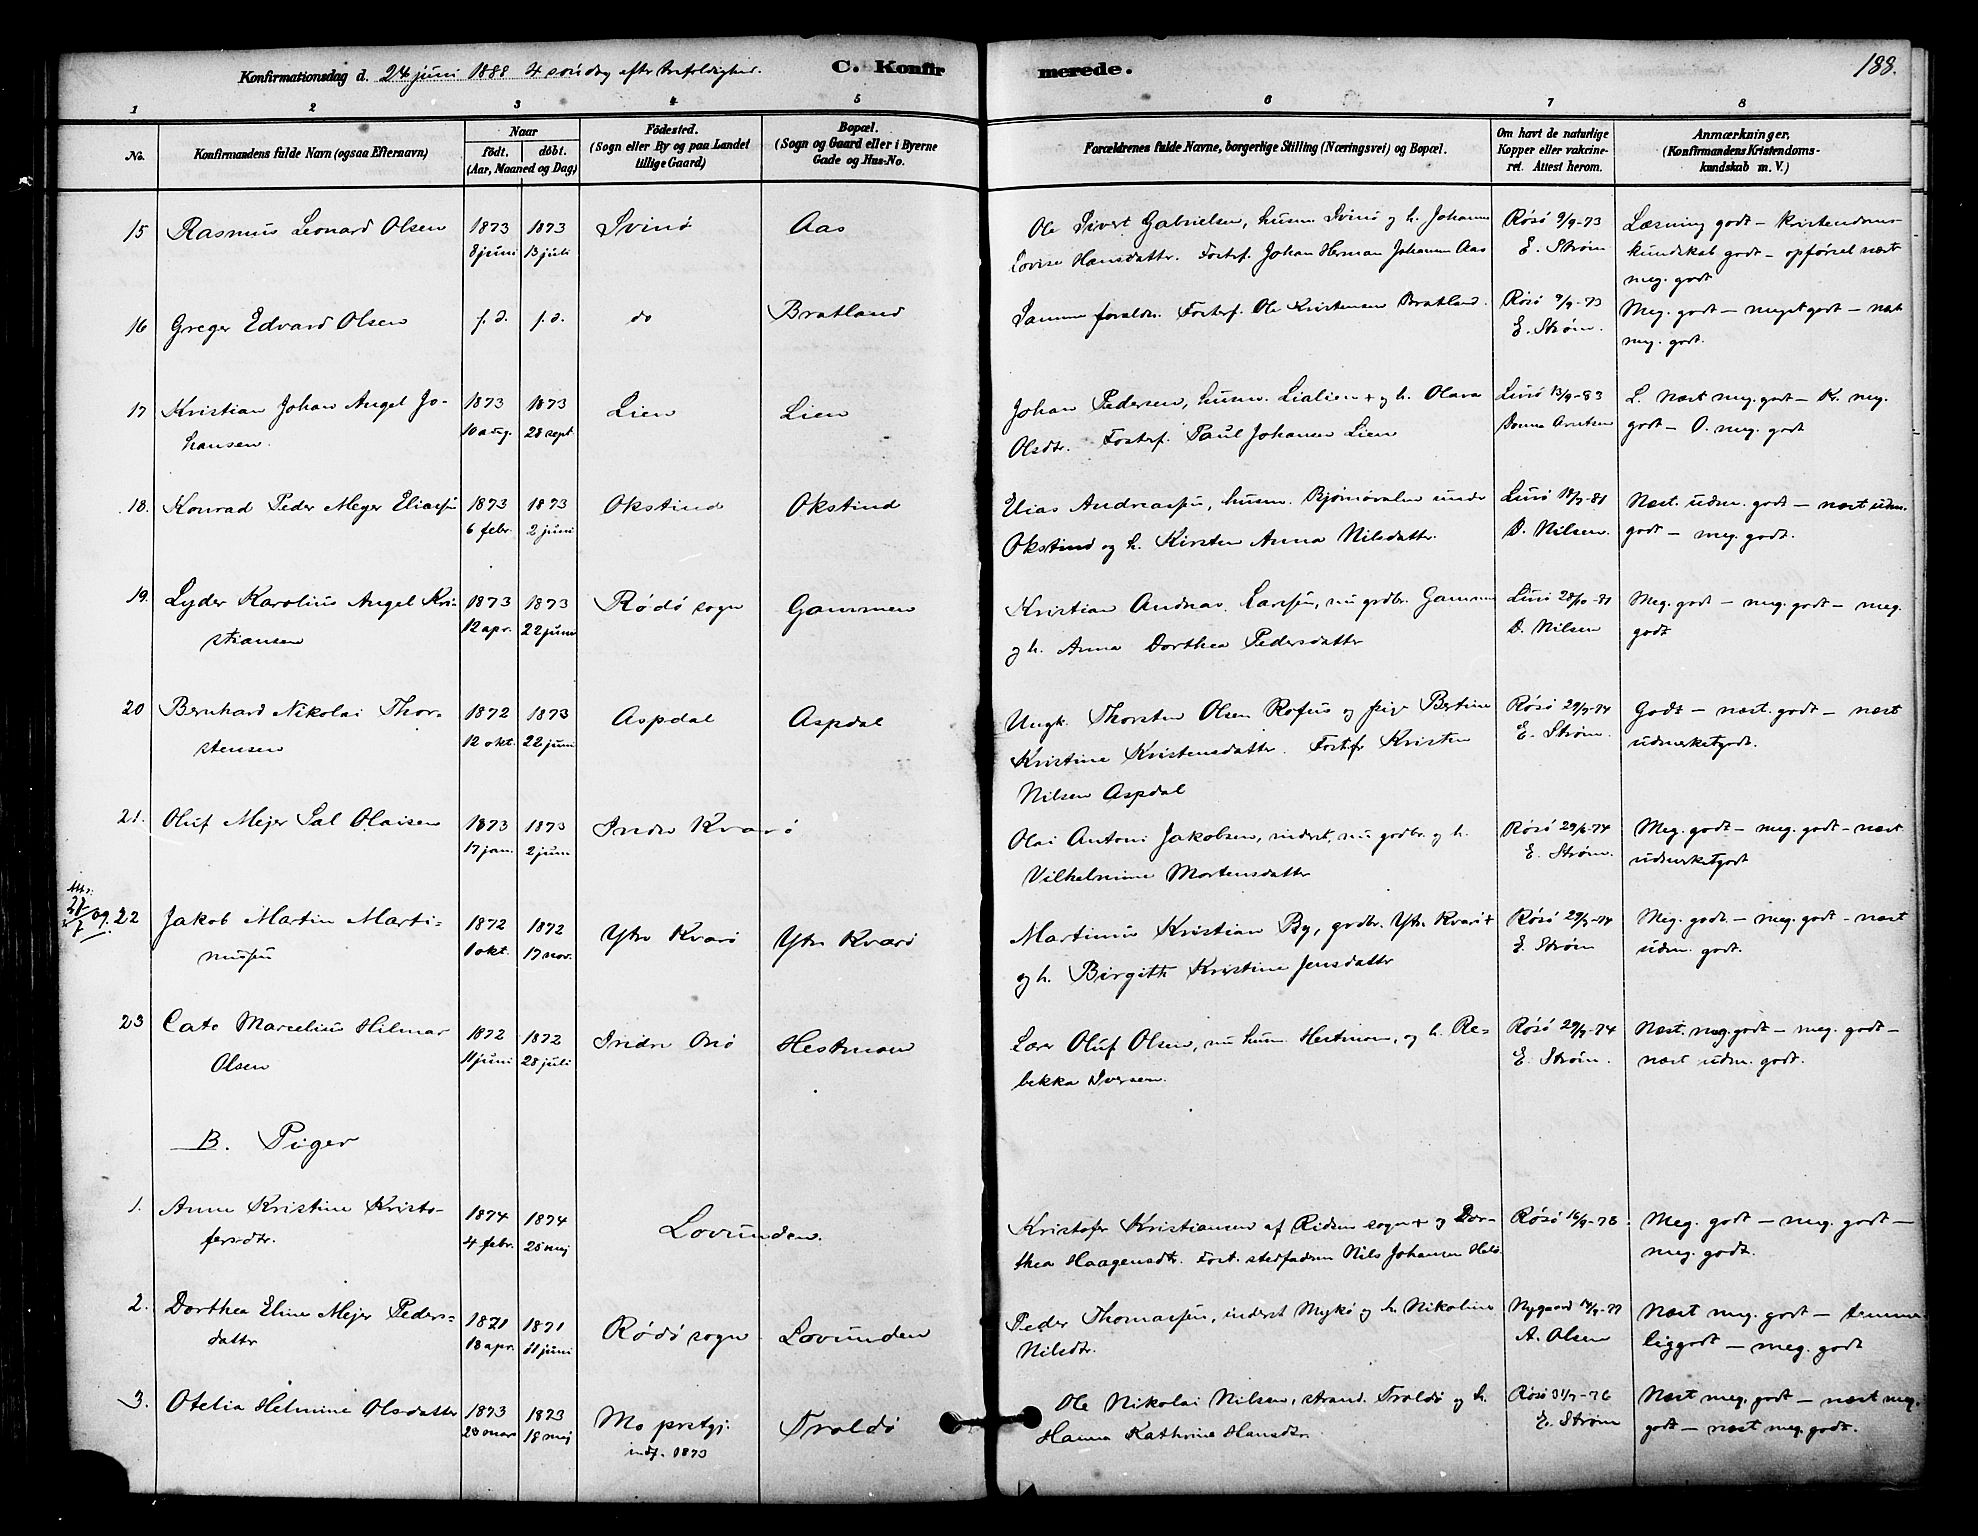 Konfirmationsdag d. 24 juni 1888 4 søndag efter trefoldighed. C. Konfirmerede. 188.
1 2 3 4 5 6 7 8
No. Konfirmandens fulde Navn (ogsaa Efternavn) Naar født. døbt. (Aar, Maaned og Dag) Fødested. (Sogn eller By og paa Landet tillige Gaard) Bopæl. (Sogn og Gaard eller i Byerne Gade og Hus-No. Forældrenes fulde Navne, borgerlige Stilling (Næringsvei) og Bopæl. Om havt de naturlige Kopper eller vakcineret. Attest herom. Anmærkninger, (Konfirmandens Kristendomskundskab m. V.)
15 Rasmus Leonard Olsen 1873 1873 Svinø Aas Ole Sivert Gabrielsen, husm Svinø og h. Johanna Røsø 9/9-73 Læsning godt – kristendoms-
8 juni 13 juli Lovise Hansdatter. Fosterf. Johan Herman Johansen Aas E. Strøm kundskab godt – opførsel næst
meg. godt
16 Greger Edvard Olsen f. d. f. d. do Bratland Samme foreldre. Fosterf. Ole Kristensen Bratland. Røsø 9/9-73 Meg. godt – meget godt – næst
E. Strøm. meg. godt.
17 Kristian Johan Angel Jo- 1873 1873 Lien Lien Johan Pedersen, husm. Lialien + og h. Olava Lurø 13/9-83 L. næst meg. godt – K. meg.
hansen. 10 aug. 28 sept Olsdtr. Fosterf. Paul Johansen Lien Arntsen godt – O. meg. godt
18. Konrad Peder Meyer Eliassen 1873 1873 Okstind Okstind Elias Andreassen, husm. under Lurø 18/9-81 Næst. udm. godt – næst udm.
6 febr. 2 juni Okstind og h. Kirsten Anna Nilsdatter. D. Nilsen. godt – meg. godt.
19. Lyder Karolius Angel Kri- 1873 1873 Rødø sogn Gammen Kristian Andreas Larssen, nu grdbr. Gammen Lurø 28/10-81 Meg. godt – meg. godt – meg.
stiansen 12 apr. 22 juni og h. Anna Dorthea Pedersdatter D. Nilsen godt
20 Bernhard Nikolai Thor- 1872 1873 Aspdal Aspdal Ungk. Thorsten Olsen Rofus og pige Bertine Røsø 29/9-74 Godt – næst. godt – næst
stensen 12 okt. 22 juni Kristine Kristensdatter. Fosterf. Kristen E. Strøm. udmerketgodt.
Nilsen Aspdal
21. Oluf Mejer Sal Olaisen 1873 1873 Indre Kvarø Olai Antoni Jakobsen, inderst, nu grdbr. og h. Røsø 29/9-74 Meg. godt – meg. godt – næst
17 jan. 2 juni Vilhelmine Mortensdatter E. Strøm. udmerketgodt
22 Jakob Martin Marti- 1872 1872 Ytre Kvarø Ytre Kvarø Martinus Kristian By, grdbr. Ytre Kvarø + Røsø 29/9-74 Meg. godt. – meg. godt – næst
nussen 1 okt. 17 nov. og h. Birgitte Kristine Jensdatter E. Strøm udm. godt.
23 Cato Marcelius Hilmar 1872 1872 Indre Onø Hestmoen Lærer Oluf Olsen, nu husm Hestmoen, og h. Re- Røsø 29/9-74 Næst. meg. godt – meg. godt –
Olsen 11 juni 28 juli bekka Iversen. E. Strøm. næst udm. godt.
B. Piger
1. Anne Kristine Kristo- 1874 1874 Lovunden. Kristofer Kristiansen af sogn + og Dor- Røsø 16/9-76. Meg. godt – meg. godt –
fersdtr. 4 febr. 25 mej thea Haagensdtr. Fost. stedfaderen Nils Johansen meg. godt.
2. Dorthea Eline Mejer Peders- 1871 1871 Rødø sogn Lovunden Peder Thomassen, inderst Mykø og h. Nikoline Nygaard 14/9-77 Næst meg. godt – temme-
datter 18 apr. 11 juni Nilsdtr. A. Olsen liggodt – meg. godt
3. Otelia Helmine Olsdatter 1873 1873 Mo prstgj. Troldø Ole Nikolai Nilsen, strand. Troldø og h. Røsø 31/7-76 Næst meg. godt – næst meg.
23 mars 18 mej indf. 1873 Hanna Kathrine Hansdtr. E. Strøm godt – næst meg. godt.